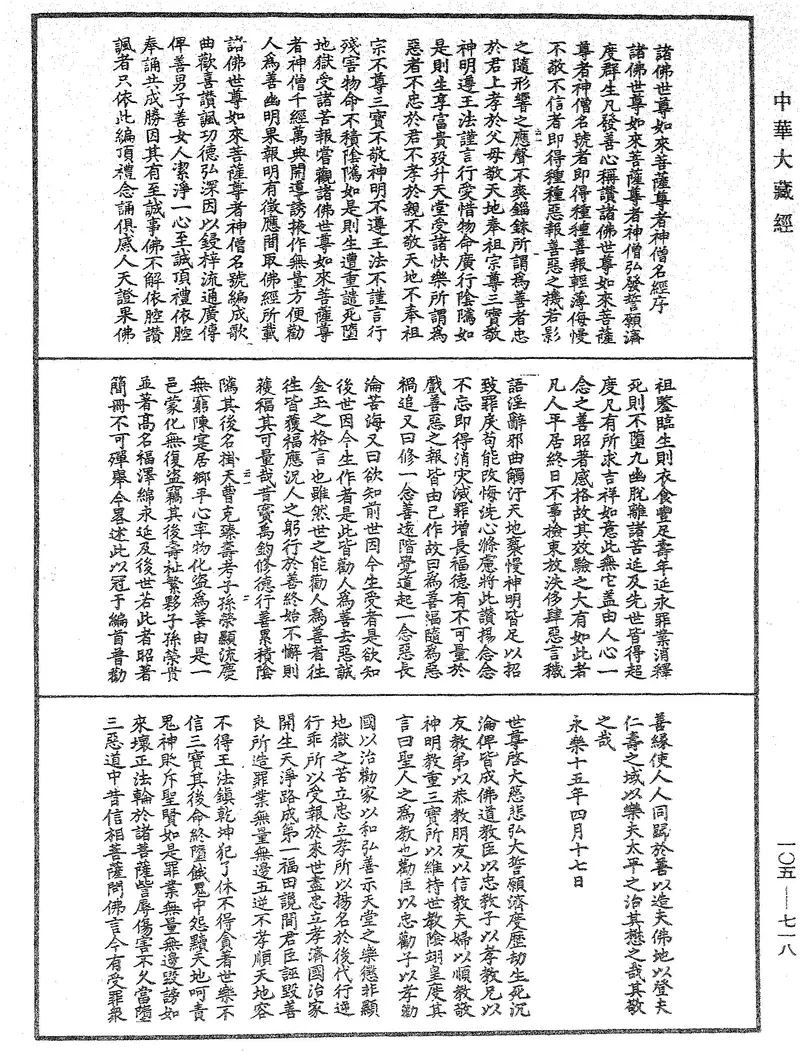 中華大藏經
一〇五——七一八
諸佛世尊如來菩薩尊者神僧名經序
諸佛世尊如來菩薩尊者神僧弘發誓願濟
度群生凡發善心稱讚諸佛世尊如來菩薩
尊者神僧名號者即得種種善報輕薄侮慢
不敬不信者即得種種惡報善惡之機若影
之隨形響之應聲不爽錙銖所謂為善者忠
於君上孝於父母敬天地奉祖宗尊三寶敬
神明遵王法謹言行愛惜物命廣行陰隲如
是則生享富貴歿升天堂受諸快樂所謂為
惡者不忠於君不孝於親不敬天地不奉祖
宗不尊三寶不敬神明不遵王法不謹言行
殘害物命不積陰隲如是則生遭重譴死墮
地獄受諸苦報嘗觀諸佛世尊如來菩薩尊
者神僧千經萬典開導誘掖作無量方便勸
人為善幽明果報明有徵應間取佛經所載
諸佛世尊如來菩薩尊者神僧名號編成歌
曲歡喜讚諷功德弘深因以鋟梓流通廣傳
俾善男子善女人潔淨一心至誠頂禮依腔
奉誦共成勝因其有至誠事佛不解依腔讚
諷者只依此編頂禮念誦俱感人天證果佛
祖鑒臨生則衣食豐足壽年延永罪業消釋
死則不墮九幽脫離諸苦延及先世皆得超
度凡有所求吉祥如意此無它蓋由人心一
念之善昭著感格故其效驗之大有如此者
凡人平居終日不事檢束放泆侈肆惡言穢
語淫辭邪曲觸汙天地褻慢神明皆足以招
致罪戾苟能改悔洗心滌慮將此讚揚念念
不忘即得消災滅罪增長福德有不可量於
戲善惡之報皆由已作故曰為善福隨為惡
禍追又曰修一念善遠階覺道起一念惡長
淪苦海又曰欲知前世因今生受者是欲知
後世因今生作者是此皆勸人為善去惡誠
金玉之格言也雖然世之能勸人為善者往
往皆獲福應況人之躬行於善終始不懈則
獲福其可量哉昔竇禹鈞修德行善累積陰
隲其後名掛天曹克臻壽考子孫榮顯流慶
無窮陳寔居鄉平心率物化盜為善由是一
邑蒙化無復盜竊其後壽祉繁夥子孫榮貴
並著高名福澤綿永延及後世若此者昭著
簡冊不可殫舉今畧述此以冠于編首普勸
善緣使人人同歸於善以造夫佛地以登夫
仁壽之域以樂夫太平之治其懋之哉其敬
之哉
永樂十五年四月十七日
世尊啓大慈悲弘大誓願濟度歷劫生死沉
淪俾皆成佛道教臣以忠教子以孝教兄以
友教弟以恭教朋友以信教夫婦以順教敬
神明教重三寶所以維持世教陰翊皇度其
言曰聖人之為教也勸臣以忠勸子以孝勸
國以治勸家以和弘善示天堂之樂懲非顯
地獄之苦立忠立孝所以揚名於後代行逆
行乖所以受報於來世盡忠立孝濟國治家
開生天淨路成第一福田說間君臣誣毀善
良所造罪業無量無邊五逆不孝順天地容
不得王法鎮乾坤犯了休不得貪著世樂不
信三寶其後命終墮餓鬼中怨黷天地呵責
鬼神欺斥聖賢如是罪業無量無邊毀謗如
來壞正法輪於諸菩薩訾辱傷害不久當墮
三惡道中昔信相菩薩問佛言今有受罪衆